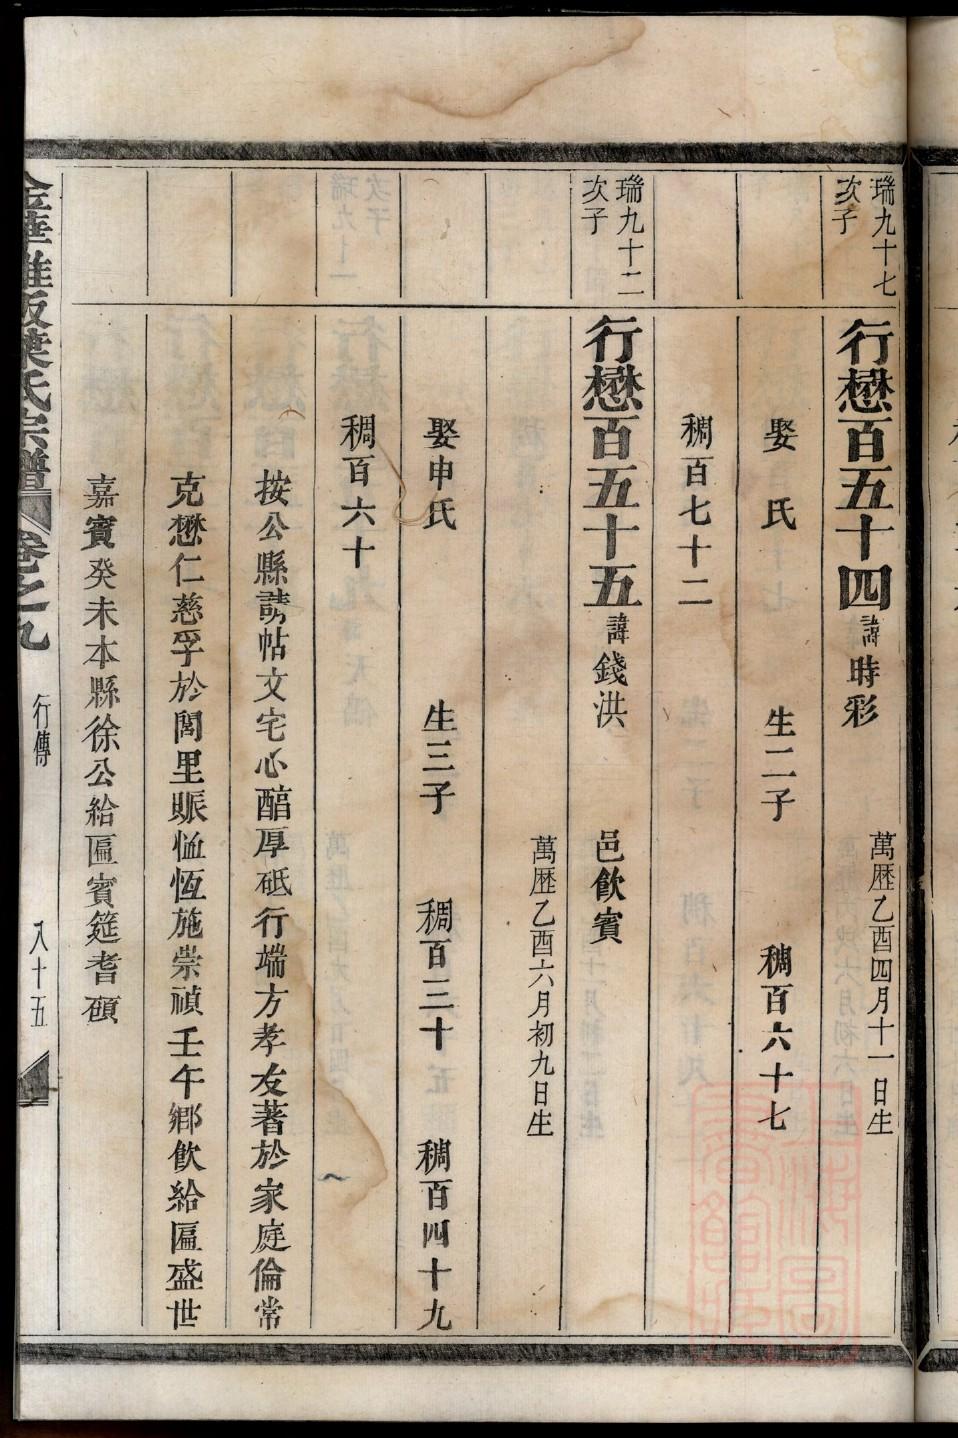 瑞九十七
次子
行懋百五十四 諱時彩 萬歷乙酉四月十一日生
娶 氏 生二子 稠百六十七
稠百七十二
瑞九十二
次子
行懋百五十五 諱錢洪 邑飲賓
萬歷乙酉六月初九日生
娶申氏 生三子 稠百三十 稠百四十九
稠百六十
按公縣謗帖文宅心醕厚砥行端方孝友著於家庭倫常
克懋仁慈孚於閭里賑恤恆施崇禎壬午鄉飲給匾盛世
嘉賓癸未本縣徐公給匾賓筵耆碩
金華 阪葉氏宗譜 卷之九 行傳 八十五